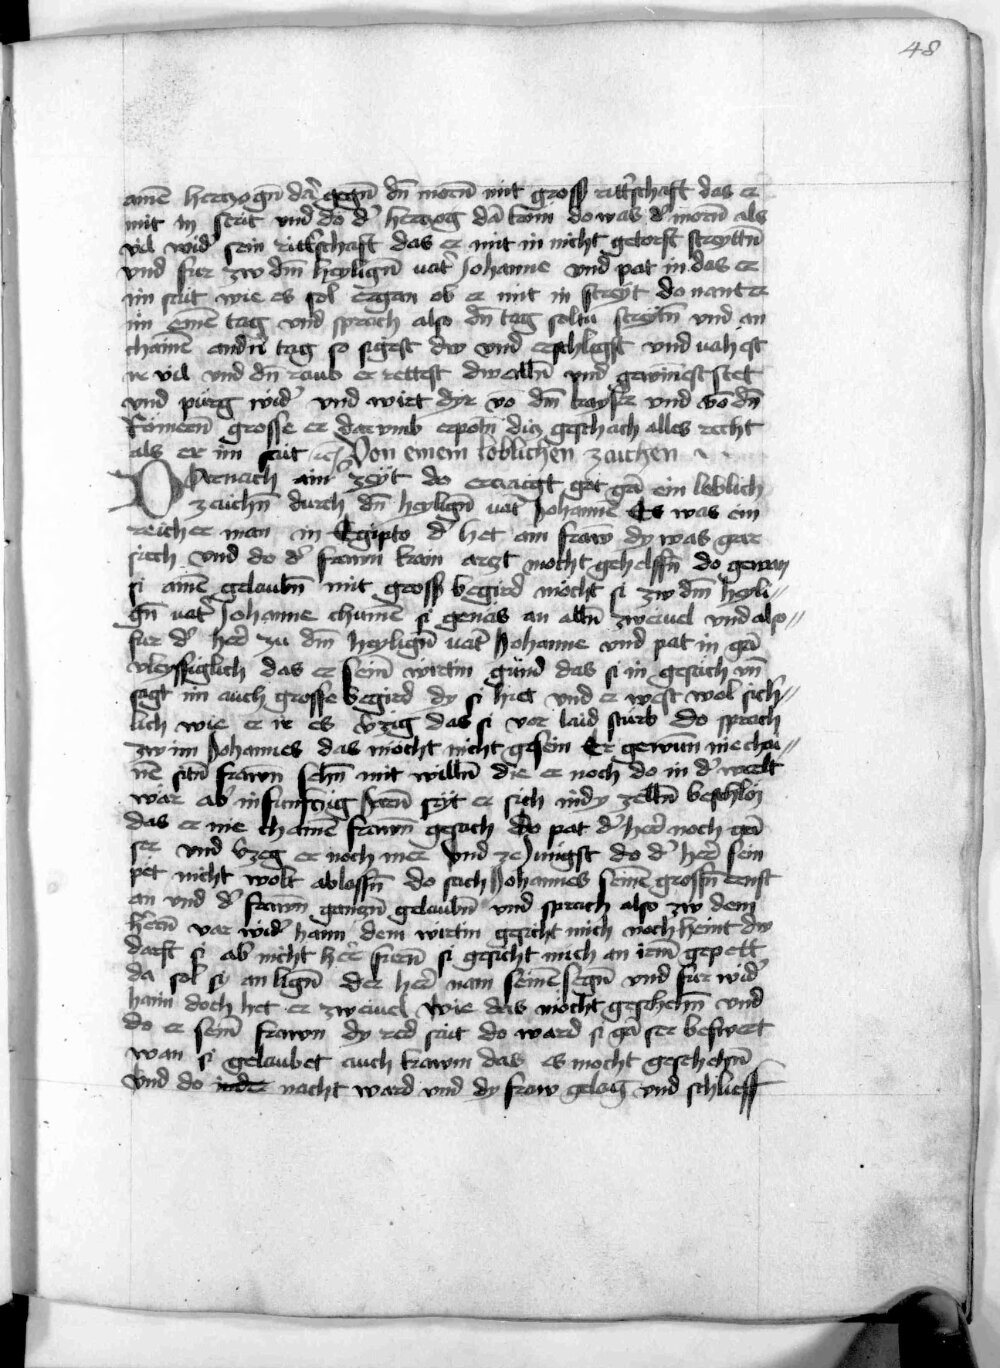 48
ainē herczogn̄ dar̃ gegn̄ dn̄ morn̄ mit gross ritt̃schaft das er
mit in strit vnd do d̃ herczog dā kom do was d̃ morn̄ als
vil wid̃ sein ritt̃schaft das er mit in nicht getorst streyttn̄
vnd fur zw dm̄ heylign̄ vat̃ Johanne vnd pat in das er
im sait wie es sol ergan ob er mit in streyt do nant er
im einē tag vnd sprach also dn̄ tag soltu streytn̄ vnd an
chainē andn̄ tag so sigest dw vnd erschlegst vnd vahest
ir vil vnd dn̄ raub er rettest dw allñ vnd gewinest stet
vnd pürg wid̃ vnd wirt dyr vō dm̄ kayser vnd vō dn̄
Römern̄ grosse er darumb erpotn̄ diz geschach alles recht
als er im sait Von einem loblichen zaichen
Darnach ainr̃ zeyt do erczaigt got gar̃ ein loblich
zaichn̄ durch dn̄ heyligñ vat̃ Johannē Es was ein
reicher man in Egipto d̃ het ain fraw dy was gar
siech vnd do d̃ frawn kain arczt mocht gehelffn̄ do gewan
si ainē gelaubn̄ mit gross begird möcht si zw dm̄ heyli〃
gn̄ vat̃ Johanne chumē si genas an alln̄ zweiuel vnd also〃
fur d̃ her̃ zu dm̄ heylign̄ vat̃ Johanne vnd pat in gar̃
vleyssiglich das er seinr̃ wirtin günd das si in gesach vn̄
sagt im auch grosse begird dy si hiet vnd er west wol sich̃〃
lich wie er ir es v̄zig das si vor laid sturb do sprach
zw im Johannes das möcht nicht gesein Er gewun nie chai〃
nē sitn̄ frawn̄ sehn̄ mit willn̄ die er noch do in d̃ werlt
wär ab̃ in funfczig Jarn̄ seyt er sich in dy zelln̄ beschloz
das er nie chainē frawn̄ gesach do pat d̃ her̃ noch gar̃
ser vnd v̄zeg er noch mer vnd ze Jungst do d̃ her̃ sein
pet nicht wolt ablassn̄ do sach Johannes seinē grossn̄ ernst
an vnd d̃ frawn ganczn̄ gelaubn̄ vnd sprach also zw dem
hern̄ var wid̃ haim dein wirtin gesicht mich noch heint dw
darft si ab̃ nicht her̃ furn̄ si gesicht mich an irem gepett
da sol si an lign̄ der her̃ nam seinē segn̄ vnd fur wid̃
haim doch het er zweiuel wie das möcht geschehn̄ vnd
do er seinr̃ frawn dy red sait do ward si gar̃ ser beswert
wan si gelaubet auch kawm das es mocht geschehn̄
vnd do nacht ward vnd dy fraw gelag vnd schlieff